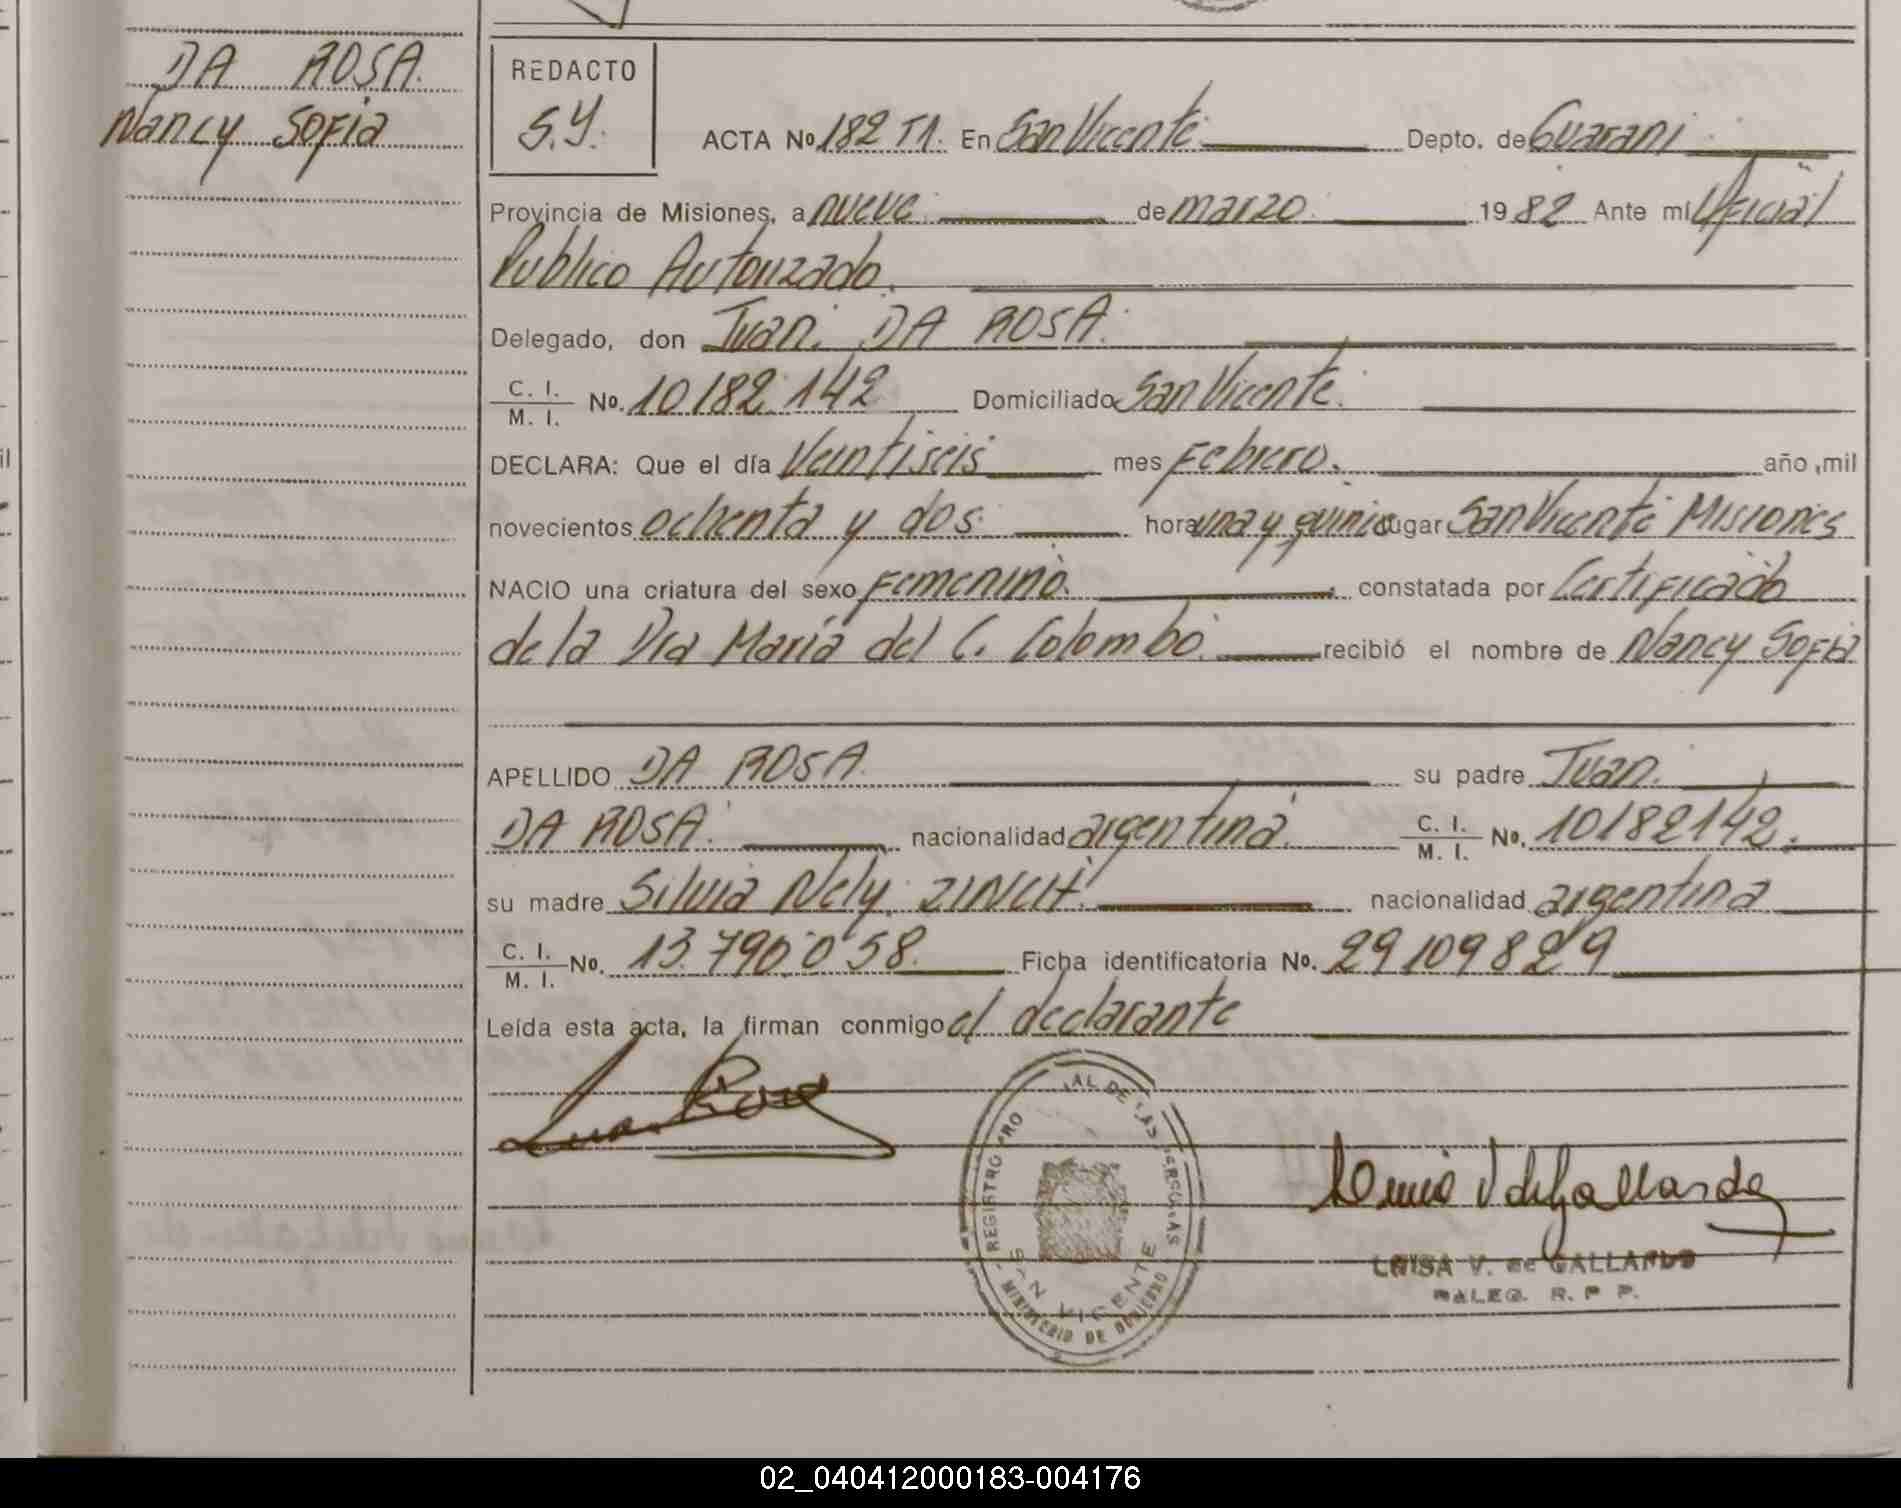 DA ROSA.
Nancy Sofia
REDACTO
S.Y.
ACTA No. 182 T1. En San Vicente Depto. de Guarani
Provincia de Misiones, a nueve de marzo. 1982 Ante mi Oficial
Publico Autorizado.
Delegado, don Juan. DA ROSA.
C. I.
M. I. No. 10182142 Domiciliado San Vicente.
DECLARA: Que el día Veintiseis mes Febrero. año mil
novecientos ochenta y dos. hora una y quince lugar San Vicente Misiones
NACIO una criatura del sexo Femenino. constatada por Certificado
de la Dra María del C. Colombo. recibió el nombre de Nancy Sofia
APELLIDO DA ROSA. su padre Juan.
DA ROSA. nacionalidad argentina. C. I.
M. I. No. 10182142.
su madre Silvia Nely. nacionalidad argentina
C. I.
M. I. No. 13.790.058. Ficha identificatoria No. 29109829
Leída esta acta, la firman conmigo el declarante
REGISTRO PRO AL DE LAS PERSONAS
SAN VICENTE
MINISTERIO DE GOBIERNO
LUISA V. de GALLARDO
R. P. P.
02_040412000183-004176